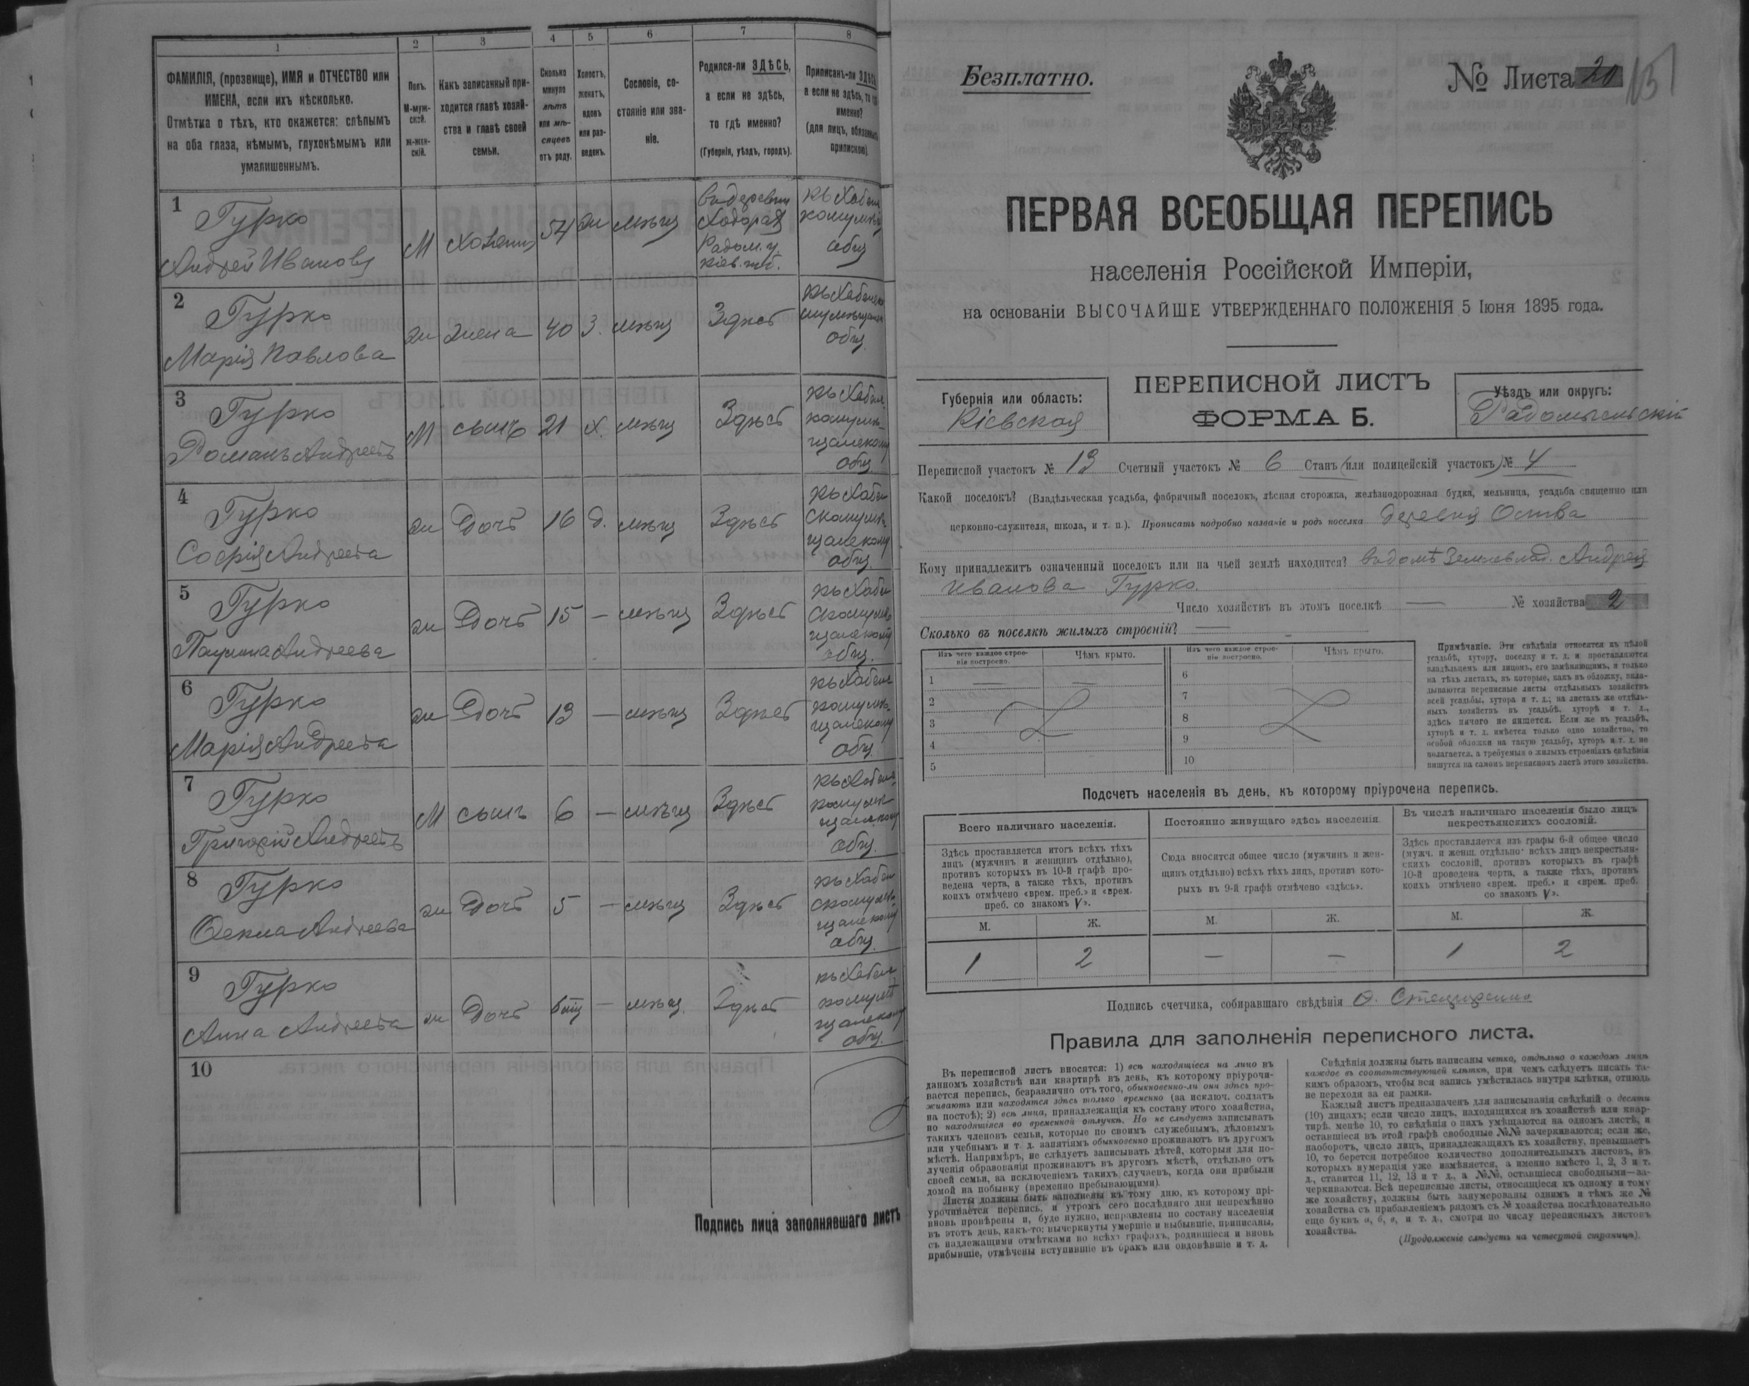 1
2
3
4
5
6
7
8
ФАМИЛІЯ, (прозвище), ИМЯ и ОТЧЕСТВО или
ИМЕНА, если ихъ нѣсколько.
Отмѣтка о тѣхъ, кто окажется: слѣпымъ
на оба глаза, нѣмымъ, глухонѣмымъ или
умалишеннымъ.
Полъ.
М-муж-
ской.
Ж-жен-
скій.
Какъ записанный при-
ходится главѣ хозяй-
ства и главѣ своей
семьи.
Сколько
минуло
лѣтъ
или мѣ-
сяцевъ
отъ роду.
Холостъ,
женатъ,
вдовъ
или раз-
веденъ.
Сословіе, со-
стояніе или зва-
ніе.
Родился-ли ЗДѢСЬ,
а если не здѣсь,
то гдѣ именно?
(Губернія, уѣздъ, городъ).
Приписанъ-ли ЗДѢСЬ,
а если не здѣсь, то гдѣ
именно?
(для лицъ, обязанныхъ
припискою).
1
Гурко
Андрей Ивановъ
М
хозяинъ
54
жи
мѣщ
въ деревни
Ходорая
Радом. у.
Кіев. губ.
общ
2
Гурко
Марія Павлова
жи
жена
40
З.
мѣщ
Здѣсь
общ.
3
Гурко
Романъ Андреевъ
М
сынъ
21
х.
мѣщ
Здѣсь
общ.
4
Гурко
Софія Андреева
жи
Дочь
16
д.
мѣщ
Здѣсь
общ.
5
Гурко
Паулина Андреева
жи
Дочь
15
—
мѣщ
Здѣсь
общ.
6
Гурко
Марія Андреева
жи
Дочь
13
—
мѣщ
Здѣсь
общ
7
Гурко
Григорій Андреевъ
М
сынъ
6
—
мѣщ
Здѣсь
общ.
8
Гурко
Фекла Андреева
жи
Дочь
5
—
мѣщ
Здѣсь
общ.
9
Гурко
Анна Андреева
жи
Дочь
—
мѣщ.
Здѣсь
общ.
10
Подпись лица заполнявшаго листъ
Безплатно.
№ Листа 20
ПЕРВАЯ ВСЕОБЩАЯ ПЕРЕПИСЬ
населенія Россійской Имперіи,
на основаніи ВЫСОЧАЙШЕ УТВЕРЖДЕННАГО ПОЛОЖЕНІЯ 5 Іюня 1895 года.
Губернія или область:
Кіевская
ПЕРЕПИСНОЙ ЛИСТЪ
ФОРМА Б.
Уѣздъ или округъ:
Радомысльскій
Переписной участокъ № 13 Счетный участокъ № 6 Станъ (или полицейскій участокъ) № 4
Какой поселокъ? (Владѣльческая усадьба, фабричный поселокъ, лѣсная сторожка, желѣзнодорожная будка, мельница, усадьба священно или
церковно-служителя, школа, и т. п.). Прописать подробно названіе и родъ поселка деревня
Кому принадлежитъ означенный поселокъ или на чьей землѣ находится? Андрей
Иванова Гурко.
Число хозяйствъ въ этомъ поселкѣ —
№ хозяйства 2
Сколько въ поселкѣ жилыхъ строеній? —
Изъ чего каждое строе-
ніе построено.
Чѣмъ крыто.
Изъ чего каждое строе-
ніе построено.
Чѣмъ крыто.
1 — —
2
3
4
5
6
7
8
9
10
Примѣчаніе. Эти свѣдѣнія относятся къ цѣлой
усадьбѣ, хутору, поселку и т. п. и проставляются
владѣльцемъ или лицомъ, его замѣняющимъ, и только
на тѣхъ листахъ, въ которые, какъ въ обложку, вкла-
дываются переписные листы отдѣльныхъ хозяйствъ
всей усадьбы, хутора и т. д.; на листахъ же отдѣль-
ныхъ хозяйствъ въ усадьбѣ, хуторѣ и т. д.,
здѣсь ничего не пишется. Если же въ усадьбѣ,
хуторѣ и т. д. имѣется только одно хозяйство, то
особой обложки на такую усадьбу, хуторъ и т. д. не
полагается, а требуемыя о жилыхъ строеніяхъ свѣдѣнія
пишутся на самомъ переписномъ листѣ этого хозяйства.
Подсчетъ населенія въ день, къ которому пріурочена перепись.
Всего наличнаго населенія.
Постоянно живущаго здѣсь населенія
Въ числѣ наличнаго населенія было лицъ
некрестьянскихъ сословій.
Здѣсь проставляется итогъ всѣхъ тѣхъ
лицъ (мужчинъ и женщинъ отдѣльно),
противъ которыхъ въ 10-й графѣ про-
ведена черта, а также тѣхъ, противъ
коихъ отмѣчено «врем. преб.» и «врем.
преб. со знакомъ V».
Сюда вносится общее число (мужчинъ и жен-
щинъ отдѣльно) всѣхъ тѣхъ лицъ, противъ кото-
рыхъ въ 9-й графѣ отмѣчено «здѣсь».
Здѣсь проставляется изъ графы 6-й общее число
(мужч. и женщ. отдѣльно) всѣхъ лицъ некрестьян-
скихъ сословій, противъ которыхъ въ графѣ
10-й проведена черта, а также тѣхъ, противъ
коихъ отмѣчено «врем. преб.» и «врем. преб.
со знакомъ V».
М.
Ж.
М.
Ж.
М.
Ж.
1
2
—
—
1
2
Подпись счетчика, собиравшаго свѣдѣнія
Правила для заполненія переписного листа.
Въ переписной листъ вносятся: 1) всѣ находящіеся на лицо въ
данномъ хозяйствѣ или квартирѣ въ день, къ которому пріурочи-
вается перепись, безразлично отъ того, обыкновенно-ли они здѣсь про-
живаютъ или находятся здѣсь только временно (за исключ. солдатъ
на постоѣ); 2) всѣ лица, принадлежащія къ составу этого хозяйства,
но находящіяся во временной отлучкѣ. Но не слѣдуетъ записывать
такихъ членовъ семьи, которые по своимъ служебнымъ, дѣловымъ
или учебнымъ и т. д. занятіямъ обыкновенно проживаютъ въ другомъ
мѣстѣ. Напримѣръ, не слѣдуетъ записывать дѣтей, которыя для по-
лученія образованія проживаютъ въ другомъ мѣстѣ, отдѣльно отъ
своей семьи, за исключеніемъ такихъ случаевъ, когда они прибыли
домой на побывку (временно пребывающими).
Листы должны быть заполнены къ тому дню, къ которому прі-
урочивается перепись, и утромъ сего послѣдняго дня непремѣнно
вновь провѣрены и, буде нужно, исправлены по составу населенія
въ этотъ день, какъ-то: вычеркнуты умершіе и выбывшіе, приписаны,
съ надлежащими отмѣтками во всѣхъ графахъ, родившіеся и вновь
прибывшіе, отмѣчены вступившіе въ бракъ или овдовѣвшіе и т. д.
Свѣдѣнія должны быть написаны четко, отдѣльно о каждомъ лицѣ
каждое въ соотвѣтствующей клѣткѣ, при чемъ слѣдуетъ писать та-
кимъ образомъ, чтобы вся запись умѣстилась внутри клѣтки, отнюдь
не переходя за ея рамки.
Каждый листъ предназначенъ для записыванія свѣдѣній о десяти
(10) лицахъ; если число лицъ, находящихся въ хозяйствѣ или квар-
тирѣ, менѣе 10, то свѣдѣнія о нихъ умѣщаются на одномъ листѣ, и
оставшіеся въ этой графѣ свободные №№ зачеркиваются; если же,
наоборотъ, число лицъ, принадлежащихъ къ хозяйству, превышаетъ
10, то берется потребное количество дополнительныхъ листовъ, въ
которыхъ нумерація уже измѣняется, а именно вмѣсто 1, 2, 3 и т.
д., ставится 11, 12, 13 и т. д., а №№, оставшіеся свободными—за-
черкиваются. Всѣ переписные листы, относящіеся къ одному и тому
же хозяйству, должны быть занумерованы однимъ и тѣмъ же №
хозяйства съ прибавленіемъ рядомъ съ № хозяйства послѣдовательно
еще буквъ а, б, в, и т. д., смотря по числу переписныхъ листовъ
хозяйства.
(Продолженіе слѣдуетъ на четвертой страницѣ).